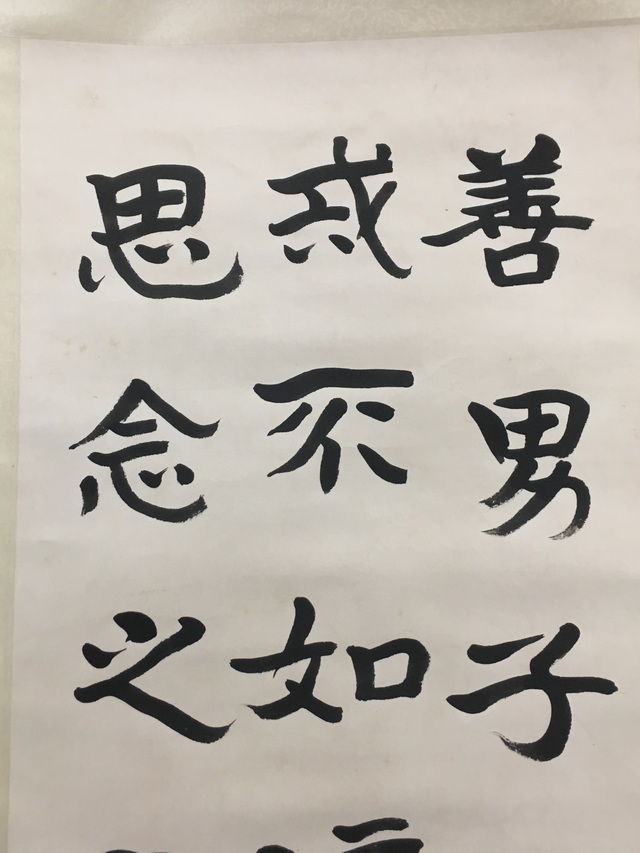 善男子
戒不如
思念之